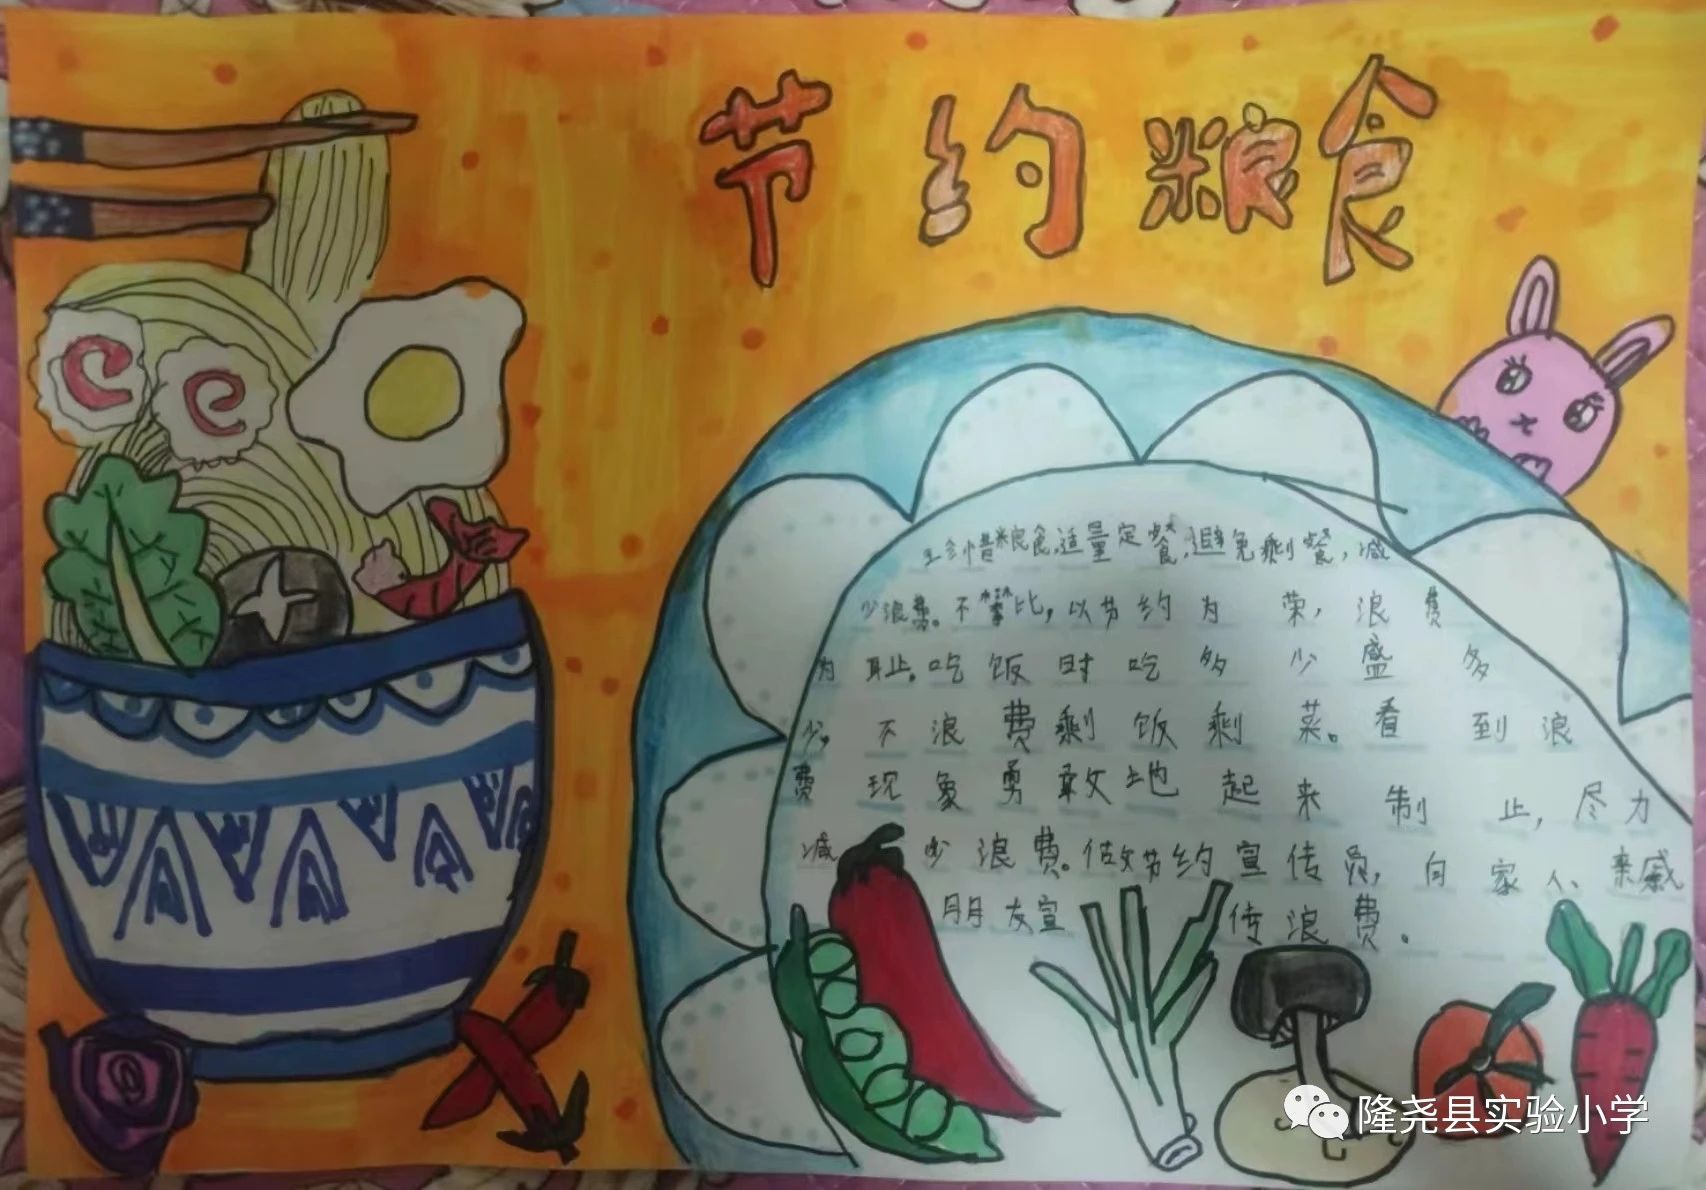 节约粮食
珍惜粮食,适量定餐,避免剩餐,减
少浪费。不攀比,以节约为荣,浪费
为耻。吃饭时吃多少盛多
少,不浪费剩饭剩菜。看到浪
费现象勇敢地起来制止,尽力
减少浪费。做节约宣传员,向家人、亲戚
朋友宣传浪费。
隆尧县实验小学